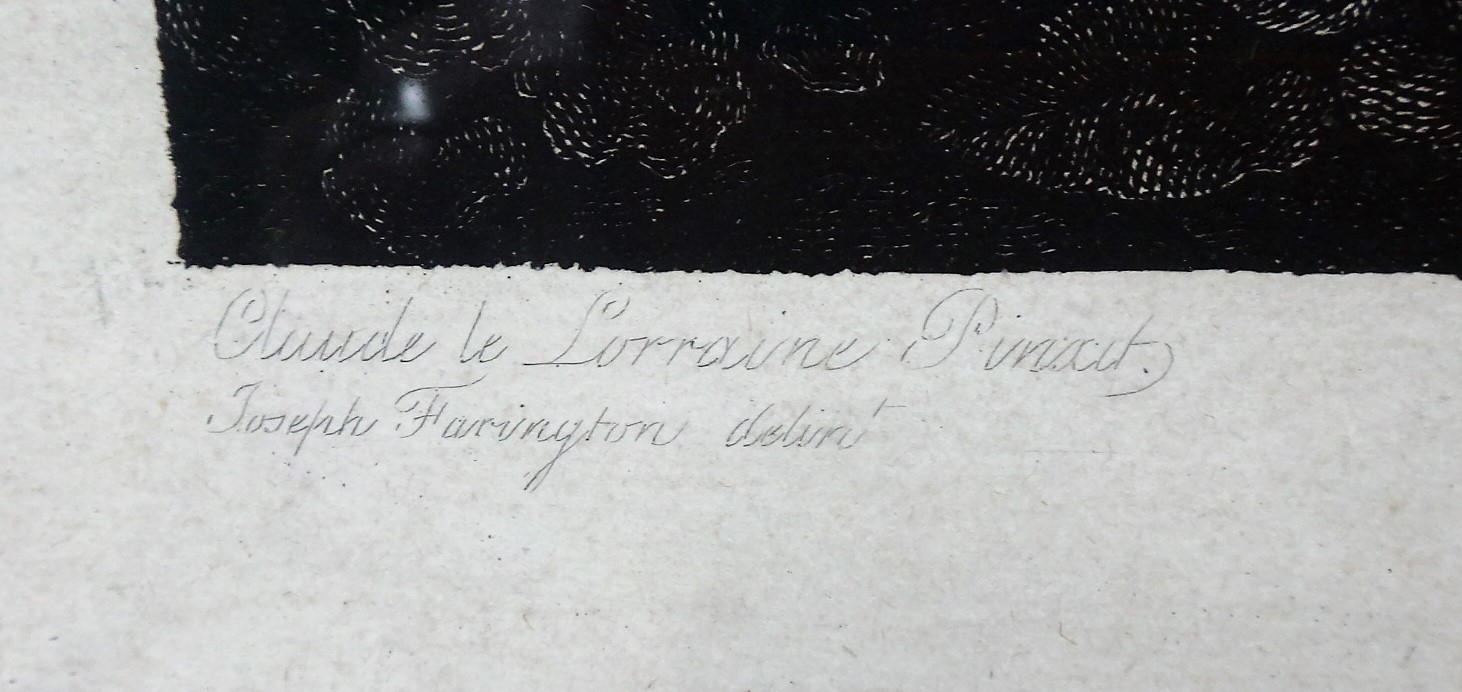 Claude le Lorraine Pinxit.
Joseph Farington delint